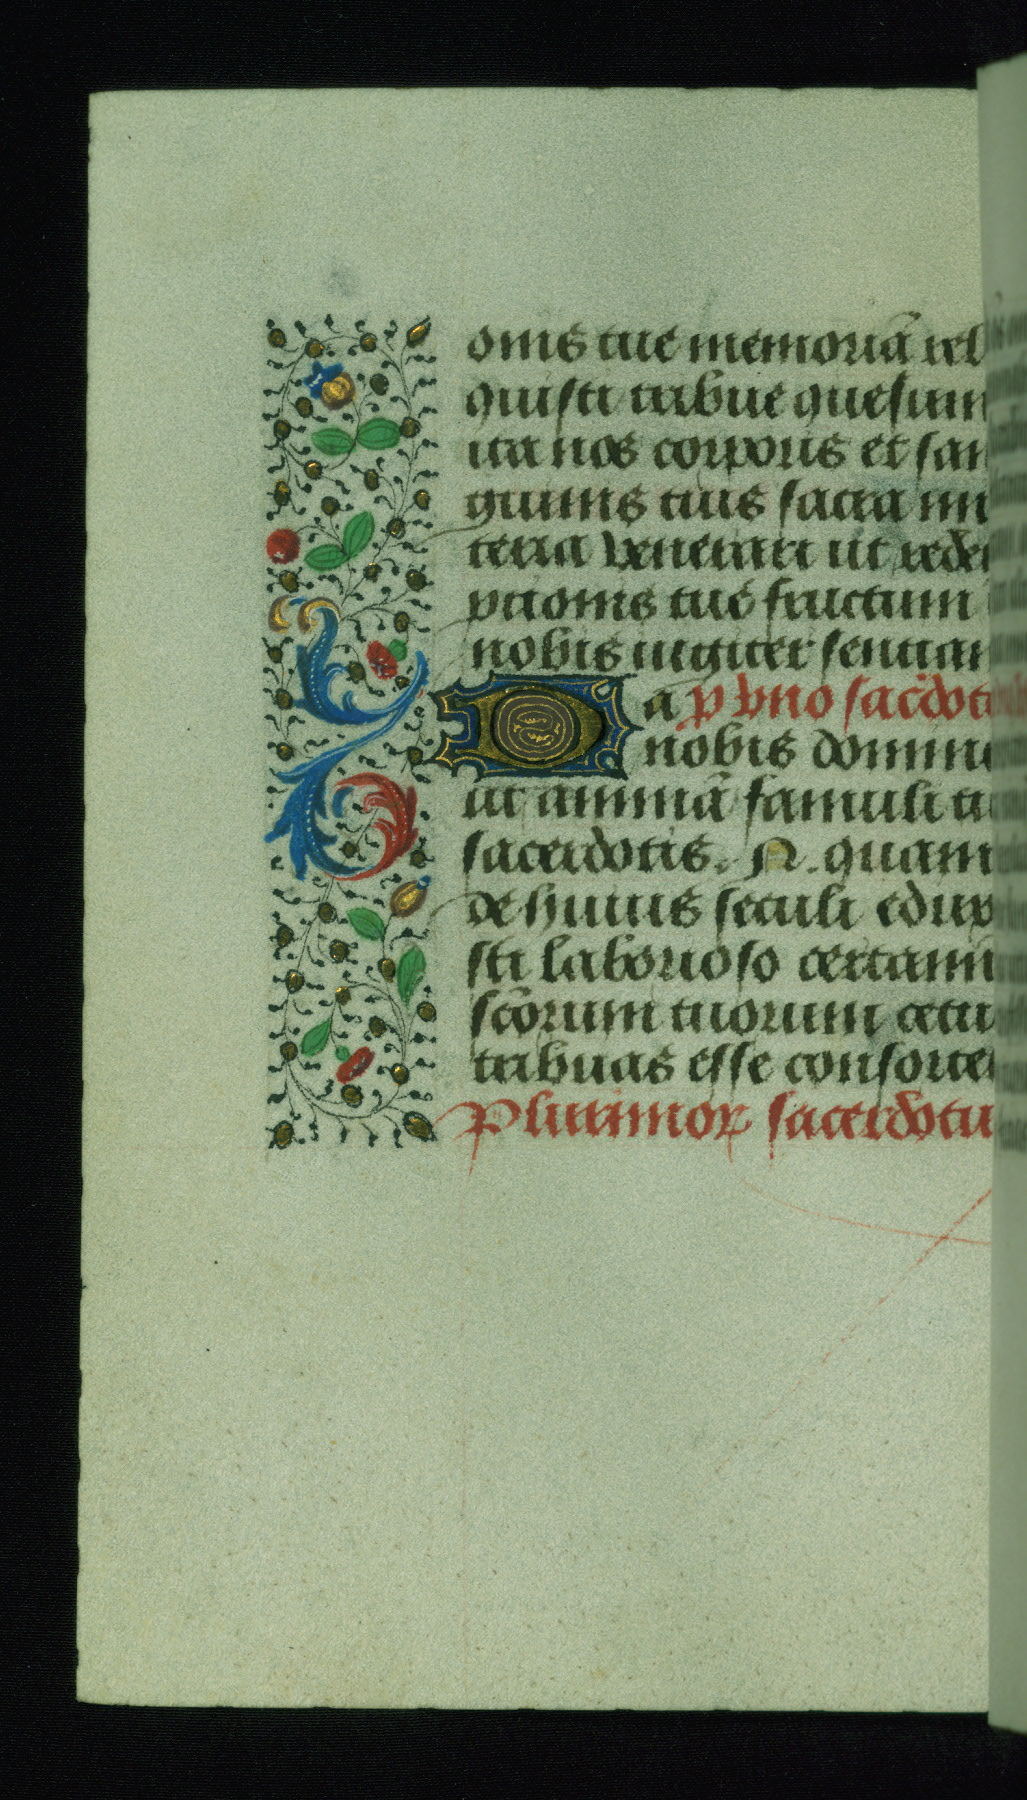 onis tue memoriã reli
quisti tribue quesum
ita nos corporis et san
guinis tuis sacra mi
teria venerari ut redẽ
ptionis tue fructum
nobis iugiter sentiam
Da p vno sac̃dot
nobis domine
ut animã famuli tu
sacerdotis. N. quam
de huius seculi edux
sti laborioso certami
sc̃orum tuorum cetu
tribuas esse consorte
Plurimoꝝ sacerdotu